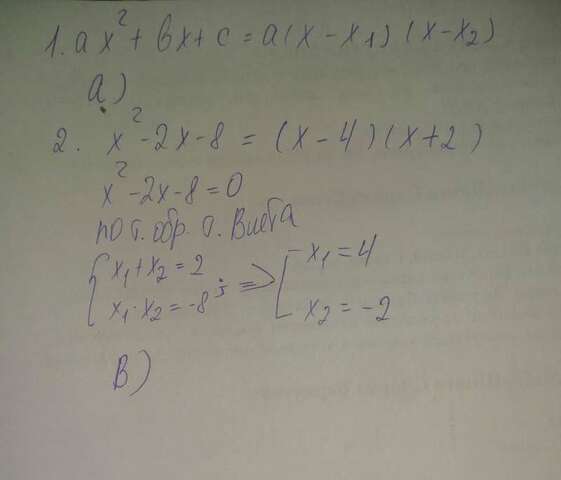 1. ax² + bx + c = a(x - x₁)(x - x₂)
а)
2. x² - 2x - 8 = (x - 4)(x + 2)
x² - 2x - 8 = 0
по т. обр. т. Виета
{ x₁ + x₂ = 2
x₁ · x₂ = -8 ; => [ x₁ = 4
x₂ = -2
В)